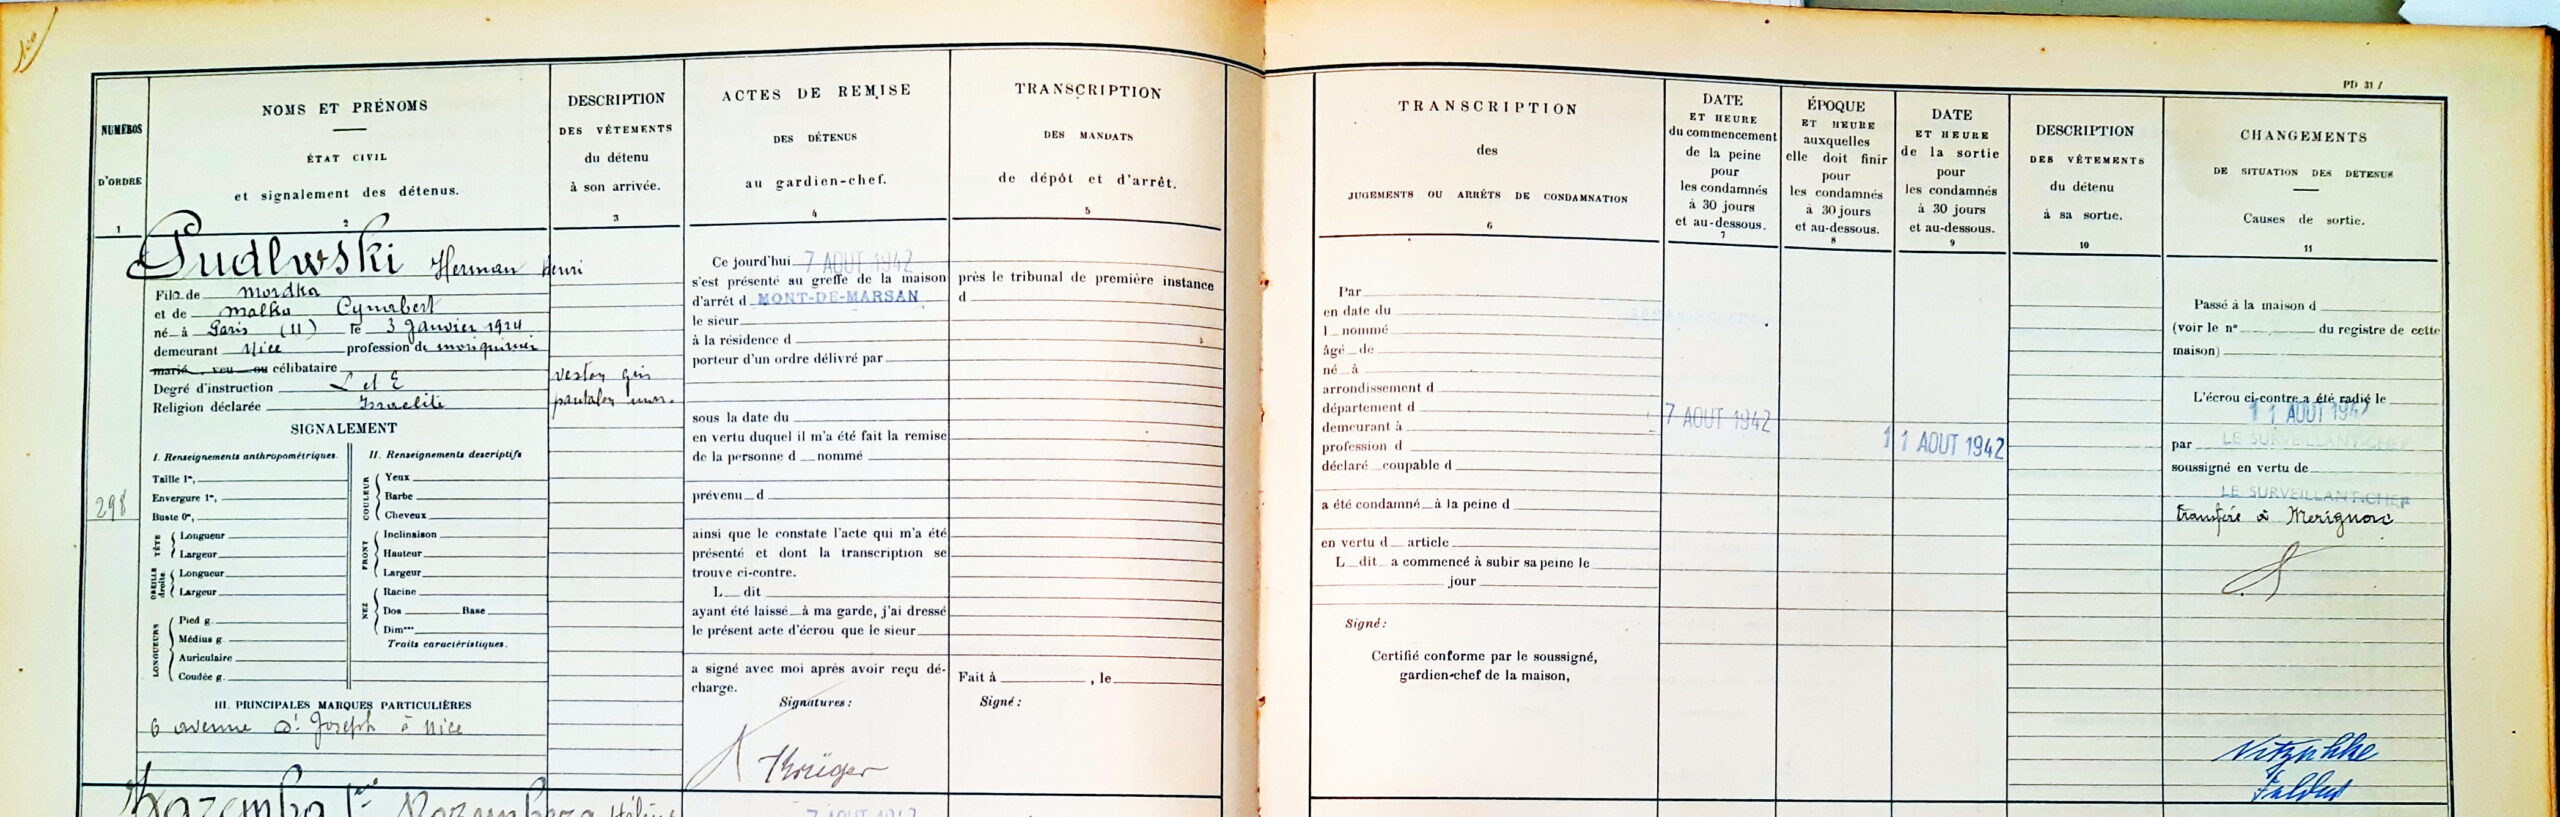 PD 31 /
NUMÉROS
D'ORDRE
1
NOMS ET PRÉNOMS
ÉTAT CIVIL
et signalement des détenus.
2
DESCRIPTION
DES VÊTEMENTS
du détenu
à son arrivée.
3
ACTES DE REMISE
DES DÉTENUS
au gardien-chef.
4
TRANSCRIPTION
DES MANDATS
de dépôt et d'arrêt.
5
TRANSCRIPTION
des
JUGEMENTS OU ARRÊTS DE CONDAMNATION
6
DATE
ET HEURE
du commencement
de la peine
pour
les condamnés
à 30 jours
et au-dessous.
7
ÉPOQUE
ET HEURE
auxquelles
elle doit finir
pour
les condamnés
à 30 jours
et au-dessous.
8
DATE
ET HEURE
de la sortie
pour
les condamnés
à 30 jours
et au-dessous.
9
DESCRIPTION
DES VÊTEMENTS
du détenu
à sa sortie.
10
CHANGEMENTS
DE SITUATION DES DÉTENUS
Causes de sortie.
11
298
Pudlwski Herman Henri
Fils de Mordka
et de Malka Cynabert
né à Paris (11) le 3 Janvier 1924
demeurant Nice profession de
marié, veu ou célibataire
Degré d'instruction L et E
Religion déclarée Israelite
SIGNALEMENT
I. Renseignements anthropométriques.
Taille 1m,
Envergure 1m,
Buste 0m,
TÊTE
Longueur
Largeur
OREILLE droite
Longueur
Largeur
LONGUEURS
Pied g.
Médius g.
Auriculaire
Coudée g.
II. Renseignements descriptifs
COULEUR
Yeux
Barbe
Cheveux
FRONT
Inclinaison
Hauteur
Largeur
NEZ
Racine
Dos Base
Dimon
Traits caractéristiques.
III. PRINCIPALES MARQUES PARTICULIÈRES
6 avenue St Joseph à Nice
veston gris
pantalon
Ce jourd'hui 7 AOUT 1942
s'est présenté au greffe de la maison
d'arrêt d MONT-DE-MARSAN
le sieur
à la résidence d
porteur d'un ordre délivré par
sous la date du
en vertu duquel il m'a été fait la remise
de la personne d nommé
prévenu d
ainsi que le constate l'acte qui m'a été
présenté et dont la transcription se
trouve ci-contre.
L dit
ayant été laissé à ma garde, j'ai dressé
le présent acte d'écrou que le sieur
a signé avec moi après avoir reçu dé-
charge.
Signatures :
Krüger
près le tribunal de première instance
d
Fait à , le
Signé :
Par
en date du
l nommé
âgé de
né à
arrondissement d
département d
demeurant à
profession d
déclaré coupable d
a été condamné à la peine d
en vertu d article
L dit a commencé à subir sa peine le
jour
Signé :
Certifié conforme par le soussigné,
gardien-chef de la maison,
7 AOUT 1942
11 AOUT 1942
Passé à la maison d
(voir le n° du registre de cette
maison)
L'écrou ci-contre a été radié le
11 AOUT 1942
par LE SURVEILLANT-CHEF
soussigné en vertu de
LE SURVEILLANT-CHEF
transféré à Merignac
7 AOUT 1942